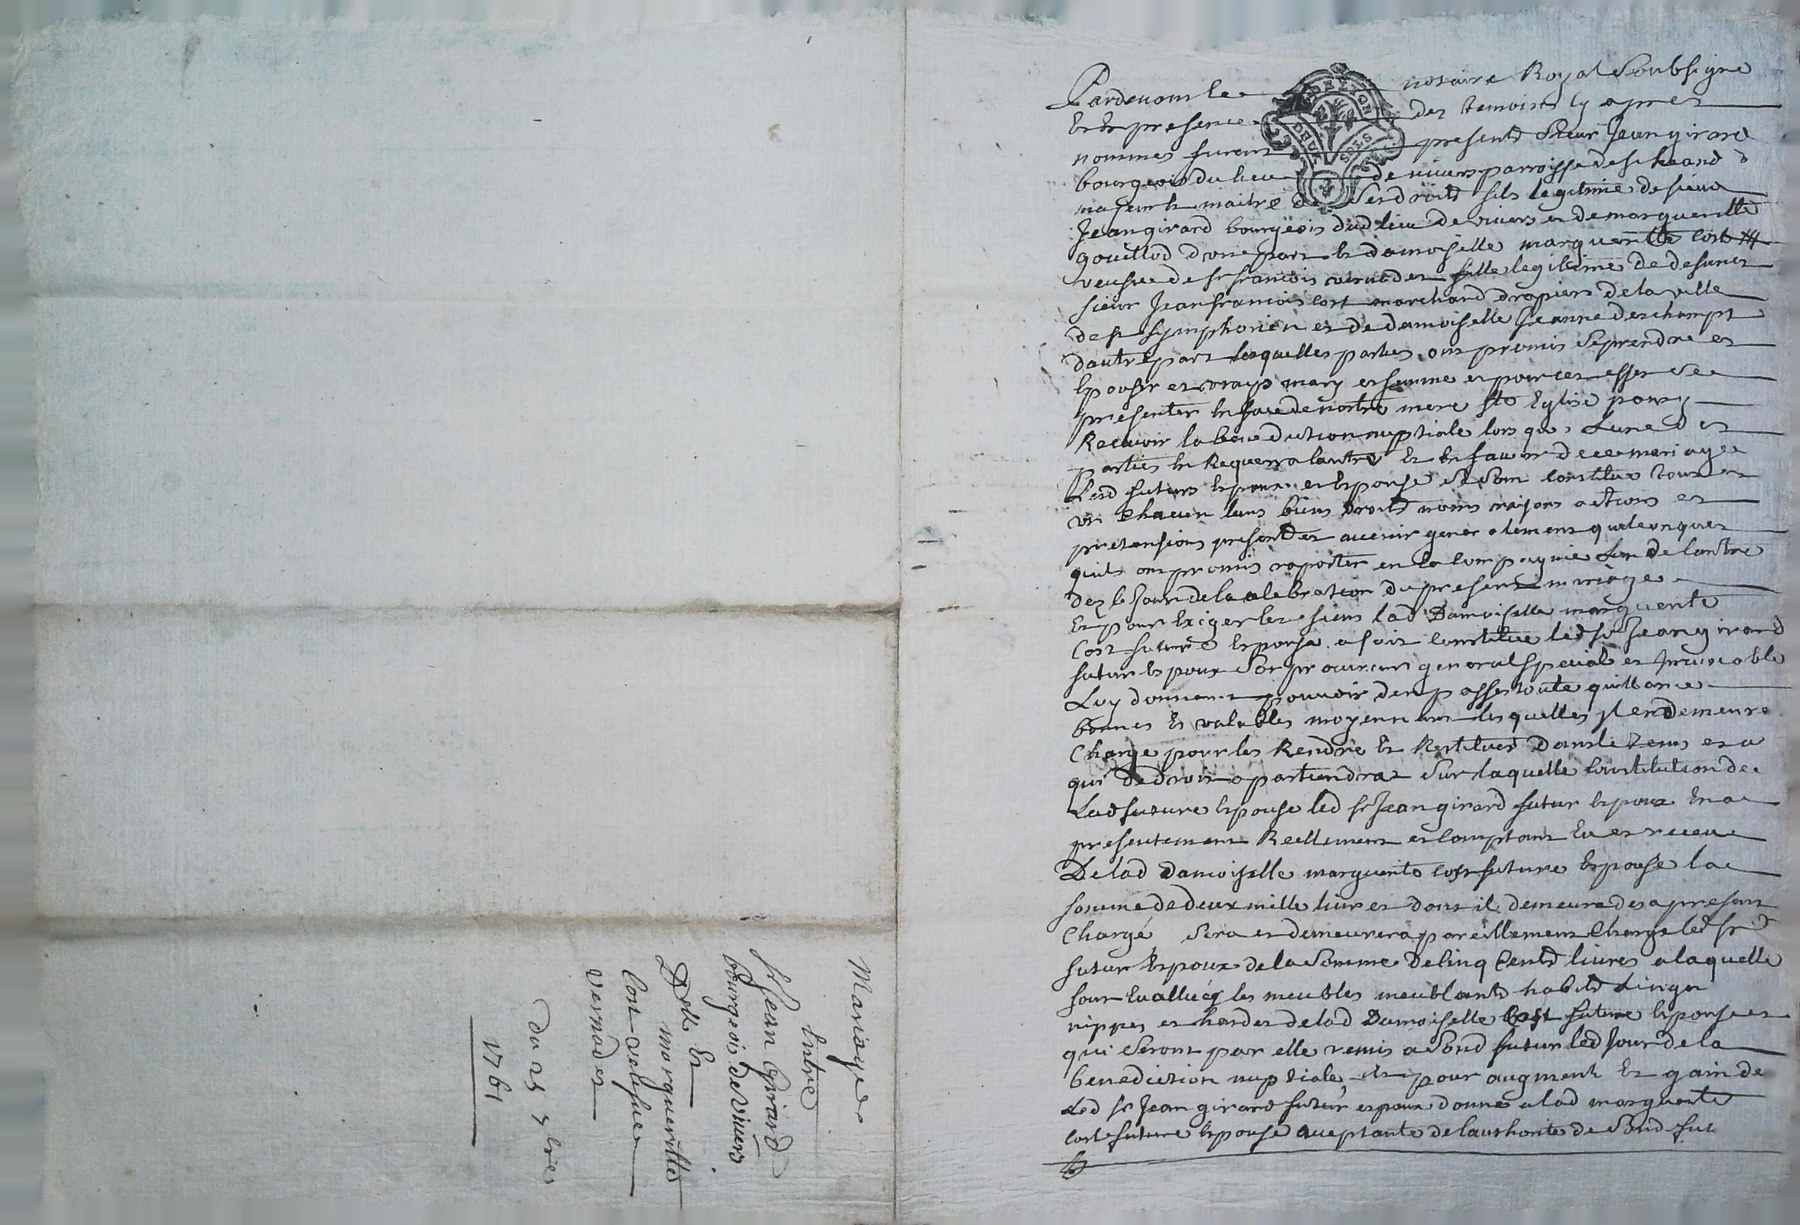 Pardevant le notaire Royal Soubsigné
Et En presence des temoins cy apres
nommes furent present Sieur Jean girard
bourgeois du lieu de viviers parroisse de st heand
majeur et maitre de Ses droits fils legitime de sieur
Jean girard bourgeois dud lieu de viviers et de margueritte
gouillod d'une part et damoiselle margueritte Cost
veufve de sr francois vernades fille legitime de defunct
Sieur Jean francois Cost marchand drapiers de la ville
de st symphorien et de damoiselle Jeanne deschampt
dautre part lesquelles parties ont promis Se prendre et
Epouser en vrays mary et femme et pour cet effet Se
presenter En face de nostre mere ste Eglise pour y
Recevoir la benediction nuptiale lors que Lune des
parties En Requerra lautre Et En faveur de ce mariage
Lesd futurs Epoux et Epouse Se Sont Constitué tous et
un chacun leurs biens droits noms raisons actions et
pretensions presents et avenir generalement quelconques
quils ont promis raporter en la Compagnie Lun de lautre
dez le Jour de la celebration du present mariage
Et pour Exiger les siens lad Damoiselle marguerite
Cost future Epouse a fait Constitué led sr Jean girard
futur Epoux Son procureur general Special et Irrevocable
Luy donnant pouvoir den passer toute quittances
bonnes Et valables moyennant lesquelles Il en demeure
Chargé pour les Rendre Et Restituer Dans le tems et a
qui de droit apartiendrat Sur laquelle Constitution de
Lad future Epouse led sr Jean girard futur Epoux En a
presentement Reellement et Comptant Eu et receu
De lad Damoiselle marguerite Cost future Epouse la
somme de deux mille livres dont il demeure des a present
Chargé Sera et demeurera pareillement Chargé led sr
futur Epoux de la Somme de Cinq Cents livres a laquelle
sont Evallués les meubles meublants habits Linges
nippes et hardes de lad Damoiselle Cost future Epouse et
qui Seront par elle remis a Sond futur led Jour de la
benediction nuptiale, Et pour augment Et gain de
Led sr Jean girard futur epoux donne a lad marguerite
Cost future Epouse acceptante de lauthorité de Sond fut
Mariage
Entre
sr Jean Girard
bourgeois de viviers
Et
Delle margueritte
Cost veufve
vernades
Du 25 7bre
1761